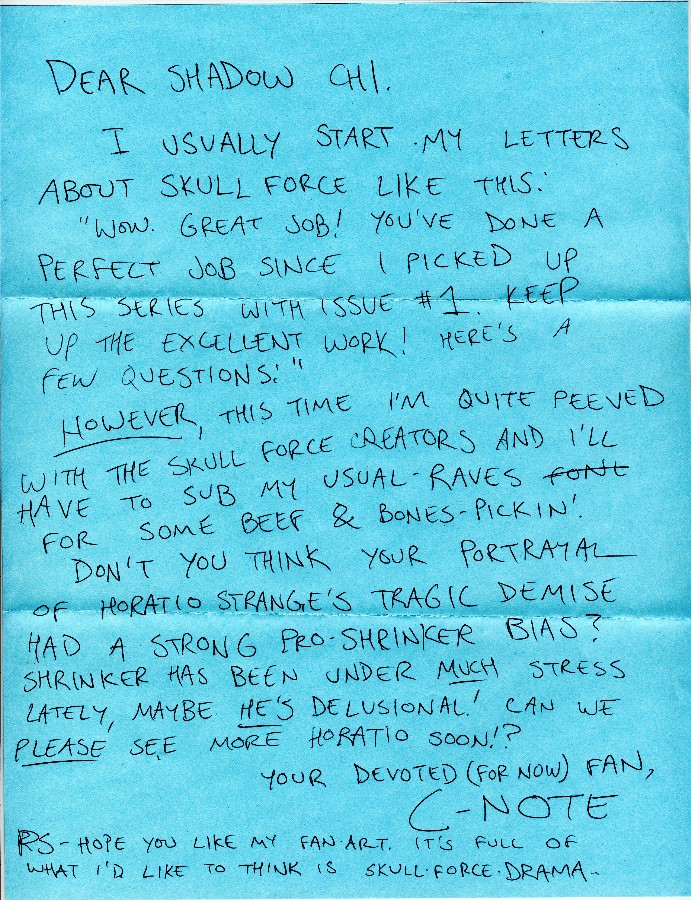 DEAR SHADOW CHI.
I USUALLY START MY LETTERS
ABOUT SKULL FORCE LIKE THIS:
"WOW. GREAT JOB! YOU'VE DONE A
PERFECT JOB SINCE I PICKED UP
THIS SERIES WITH ISSUE #1. KEEP
UP THE EXCELLENT WORK! HERE'S A
FEW QUESTIONS:"
HOWEVER, THIS TIME I'M QUITE PEEVED
WITH THE SKULL FORCE CREATORS AND I'LL
HAVE TO SUB MY USUAL-RAVES
FOR SOME BEEF & BONES-PICKIN'.
DON'T YOU THINK YOUR PORTRAYAL
OF HORATIO STRANGE'S TRAGIC DEMISE
HAD A STRONG PRO-SHRINKER BIAS?
SHRINKER HAS BEEN UNDER MUCH STRESS
LATELY, MAYBE HE'S DELUSIONAL! CAN WE
PLEASE SEE MORE HORATIO SOON!?
YOUR DEVOTED (FOR NOW) FAN,
C-NOTE
PS-HOPE YOU LIKE MY FAN·ART. IT'S FULL OF
WHAT I'D LIKE TO THINK IS SKULL·FORCE·DRAMA-